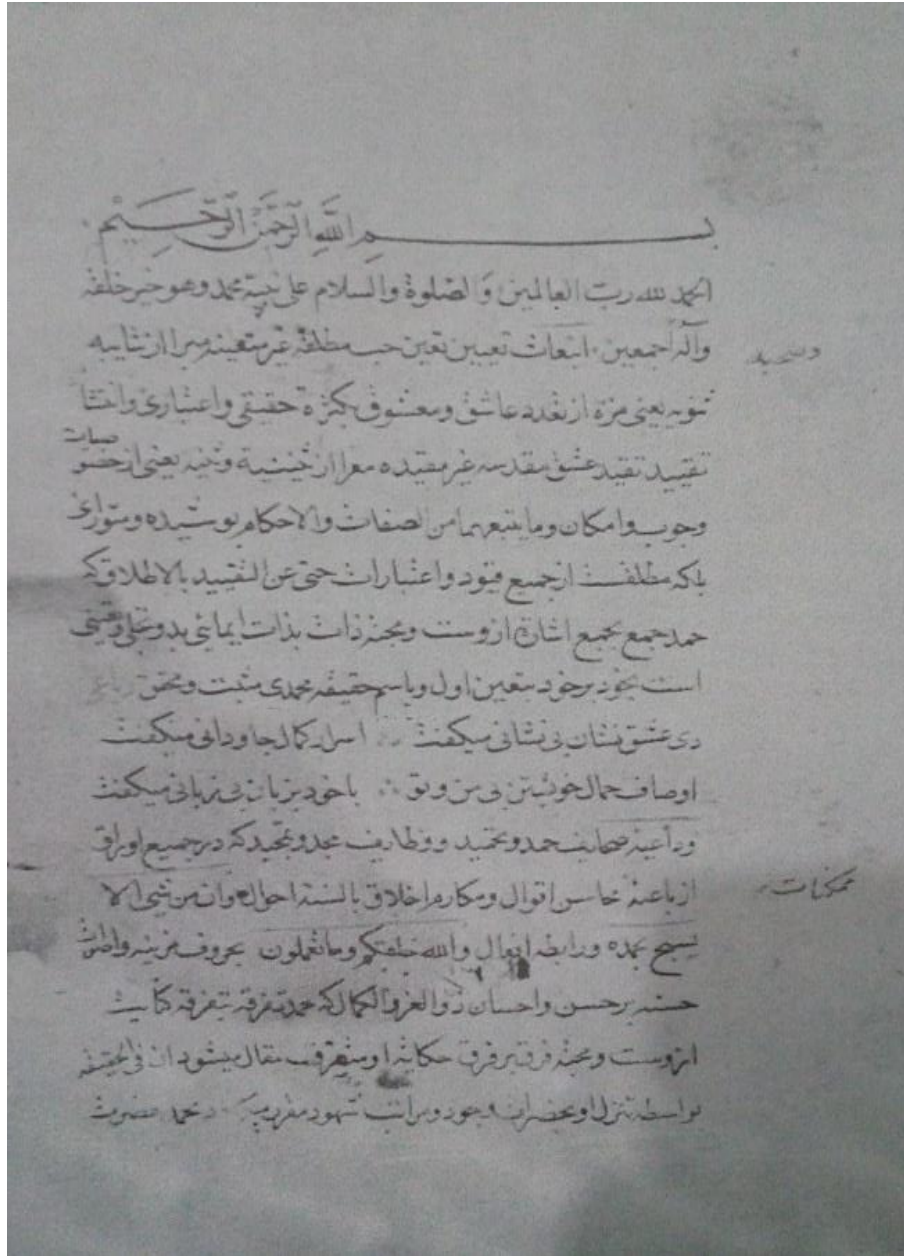 بسم الله الرحمن الرحيم
الحمد لله رب العالمين والصلوة والسلام على نبيه محمد وهو خير خلقه
وآله اجمعين انبعاث تعيين تعين حب مطلقه غير متعينه مبرا از شايبه
ثنويه يعنى منزه از تعدد عاشق ومعشوق بكثرة حقيقى واعتبارى وانتشا
تقييد تقيد عشق مقدسه غير مقيده معرا از يعنى از خصوصيات
وجوب وامكان وما يتبعهما من الصفات والاحكام پوشيده ومتوارى
بلكه مطلقست از جميع قيود واعتبارات حتى عن التقييد بالاطلاق كه
حمد جمع بجمع اشاره ازوست ومحبة ذات بذات ايمائى بدو وتجلى وتعينى
است بخود بر خود بتعين اول وباسم حقيقه محمدى مثبت ومحقق رباعى
دى عشق نشان بى نشانى ميكفت اسرار كمال جاودانى ميكفت
اوصاف جمال خويشتن بى من وتو با خود بزبان بى زبانى ميكفت
وداعيه صحايف حمد وتحميد ووظايف مجد وتمجيد كه در جميع اوراق
ممكنات
از باعثه محاسن اقوال ومكارم اخلاق بالسنه احوال وان من شئ الا
يسبح بحمده ورابطه افعال والله خلقكم وما تعملون بحروف
حسنه بر حسن واحسان ذو العز والكمال كه حمد تفرقه بتفرقه كنايت
ازوست ومحبة فرق بر فرق حكاية او مقال ميشود ان فى الحقيقه
بواسطه تنزل او بحضرات وجود ومراتب شهود حمد حضرت